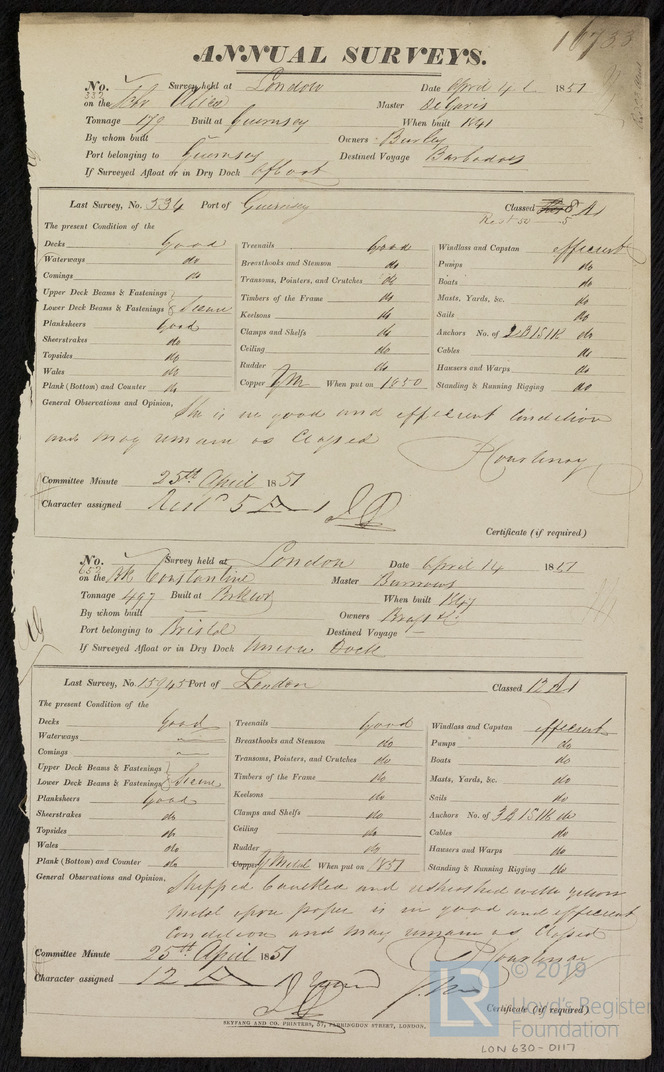 16733
ANNUAL SURVEYS.
No. 332 Survey held at London Date April 4th 1851
on the Alice Master De Garis
Tonnage 179 Built at Guernsey When built 1841
By whom built Owners Burley
Port belonging to Guernsey Destined Voyage Barbadoes
If Surveyed Afloat or in Dry Dock Afloat
Last Survey, No. 534 Port of Guernsey Classed 8 A1
Rest 50 5
The present Condition of the
Decks Good Treenails Good Windlass and Capstan efficient
Waterways do Breasthooks and Stemson do Pumps do
Comings do Transoms, Pointers, and Crutches do Boats do
Upper Deck Beams & Fastenings Timbers of the Frame do Masts, Yards, &c. do
Lower Deck Beams & Fastenings Secure Keelsons do Sails do
Planksheers Good Clamps and Shelfs do Anchors No. of 2B 1S 1K do
Sheerstrakes do Ceiling do Cables do
Topsides do Rudder do Hawsers and Warps do
Wales do Copper YM When put on 1850 Standing & Running Rigging do
Plank (Bottom) and Counter do
General Observations and Opinion, She is in good and efficient Condition
and may remain as Classed
P Courtenay
Committee Minute 25th April 1851
Character assigned Restd 5 A 1
Certificate (if required)
No. 653 Survey held at London Date April 14 1851
on the Bk Constantine Master Burrows
Tonnage 497 Built at When built
By whom built — Owners
Port belonging to Bristol Destined Voyage —
If Surveyed Afloat or in Dry Dock Union Dock
Last Survey, No. 15945 Port of London Classed 12 A1
The present Condition of the
Decks Good Treenails Good Windlass and Capstan efficient
Waterways Breasthooks and Stemson do Pumps do
Comings Transoms, Pointers, and Crutches do Boats do
Upper Deck Beams & Fastenings Timbers of the Frame do Masts, Yards, &c. do
Lower Deck Beams & Fastenings Secure Keelsons do Sails do
Planksheers Good Clamps and Shelfs do Anchors No. of 3B 1S 1K do
Sheerstrakes do Ceiling do Cables do
Topsides do Rudder do Hawsers and Warps do
Wales do Copper Y Metal When put on 1851 Standing & Running Rigging do
Plank (Bottom) and Counter do
General Observations and Opinion, Stripped Caulked and resheathed with yellow
metal upon paper is in good and efficient
Condition and may remain as Classed
P Courtenay
Committee Minute 25th April 1851
Character assigned 12 A 1
Certificate (if required)
SKYFANG AND CO. PRINTERS, 57, FARRINGDON STREET, LONDON.
LR © 2019
Lloyd's Register
Foundation
LON 630-0117